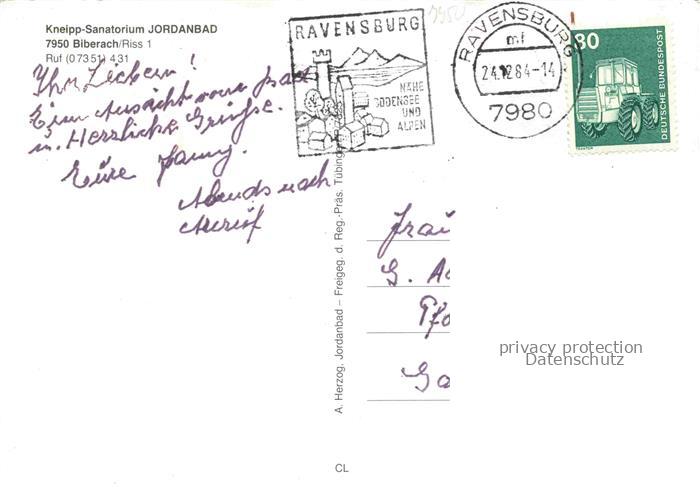 Kneipp-Sanatorium JORDANBAD
7950 Biberach/Riss 1
Ruf (07351) 431
Ihr Lieben!
Eine Ansicht vom
u. Herzliche Grüße.
Eure Fanny.
Abends nach
RAVENSBURG
NÄHE
BODENSEE
UND
ALPEN
RAVENSBURG
mf
24.12.84-14
7980
80
TRAKTOR
DEUTSCHE BUNDESPOST
A. Herzog, Jordanbad – Freigeg. d. Reg.-Präs. Tübing
Frau
G.
privacy protection
Datenschutz
CL